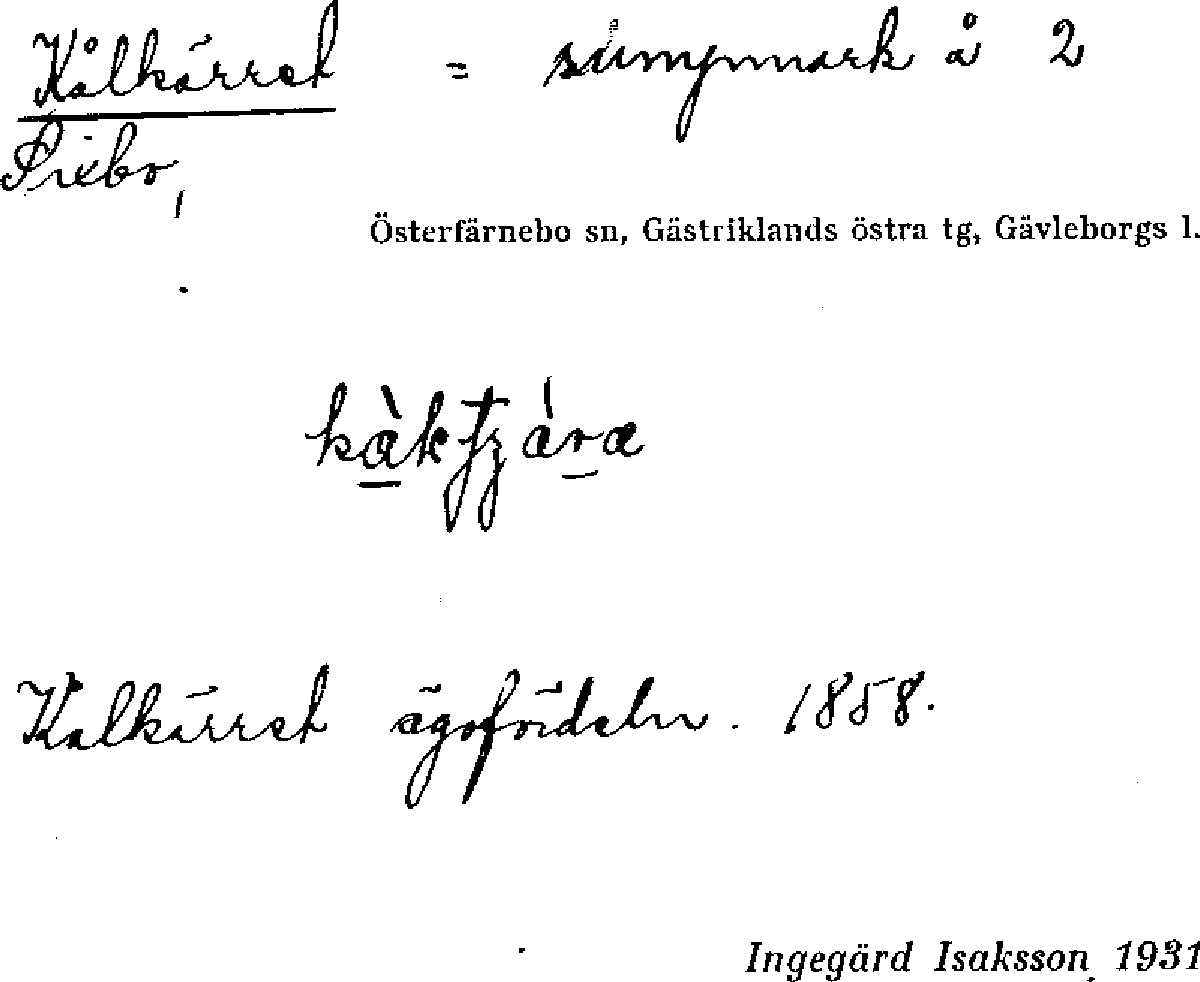 Kålkärret = sumpmark å 2
Prebo,
Österfärnebo sn, Gästriklands östra tg, Gävleborgs l.
Kalkärret ägofördeln. 1858.
Ingegärd Isaksson 1931